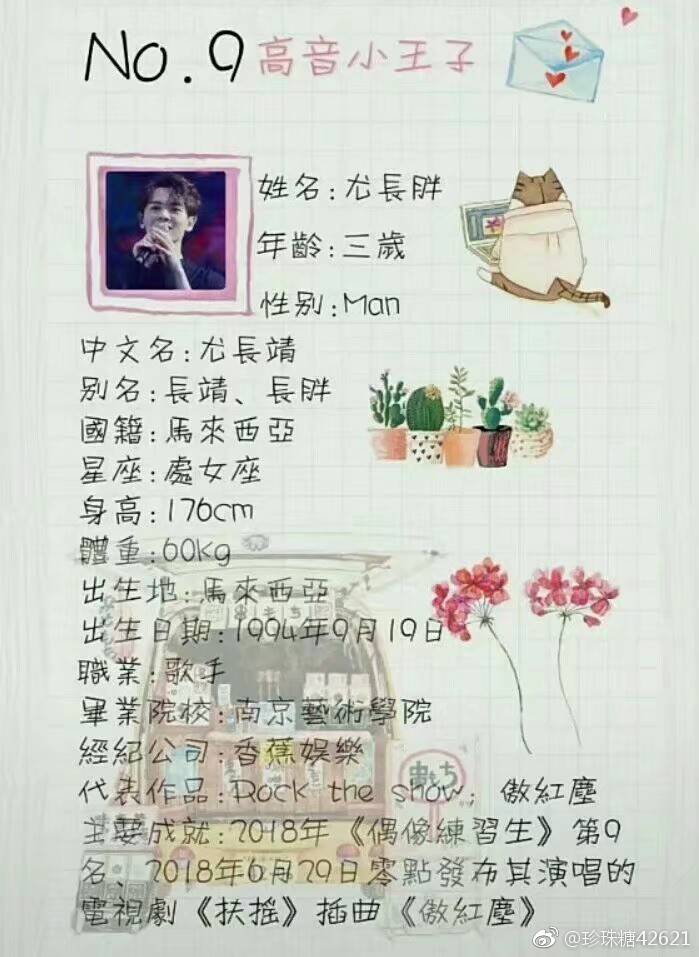 No.9 高音小王子
姓名:尤長胖
年齡:三歲
性别:Man
中文名:尤長靖
别名:長靖、長胖
國籍:馬來西亞
星座:處女座
身高:176cm
體重:60Kg
出生地:馬來西亞
出生日期:1994年9月19日
職業:歌手
畢業院校:南京藝術學院
經紀公司:香蕉娛樂
代表作品:Rock the show; 傲紅塵
主要成就:2018年《偶像練習生》第9
名、2018年6月29日零點發布其演唱的
電視劇《扶搖》插曲《傲紅塵》
串もち
@珍珠糖42621